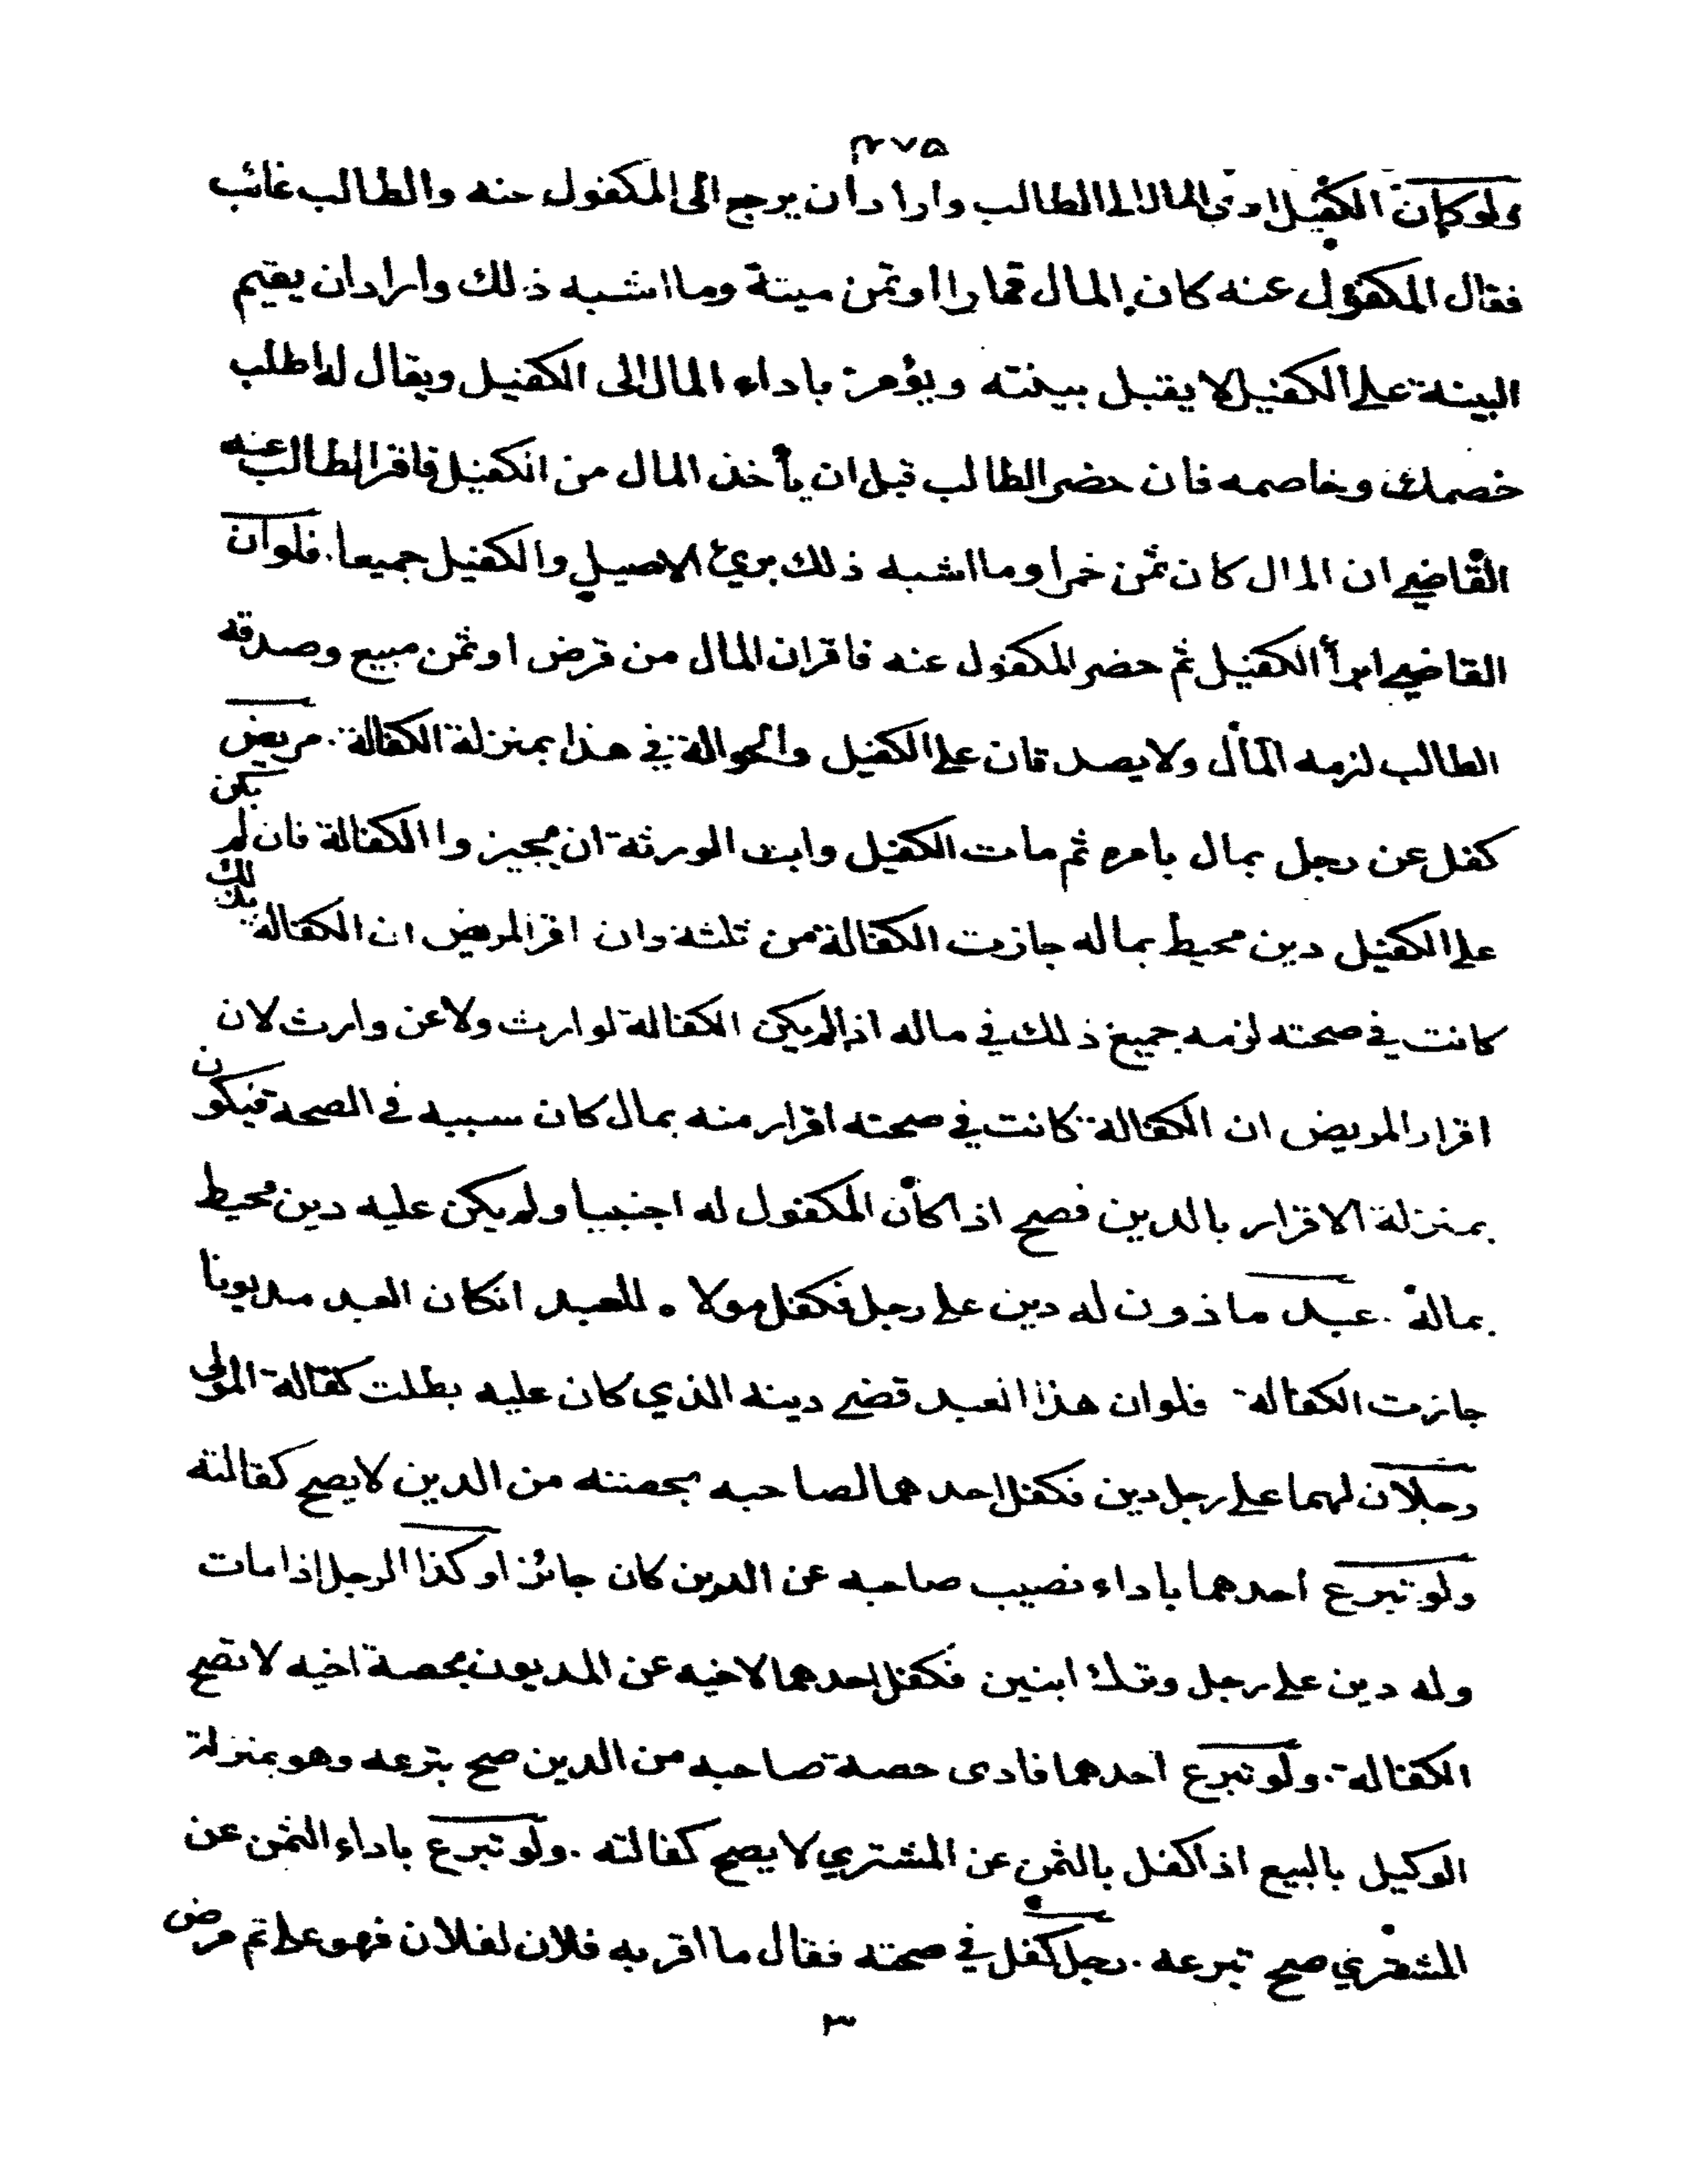 ٣٧٥
ولو كان الكفيل ادى المال الى الطالب واراد ان يرجع الى المكفول عنه والطالب غائب
فقال المكفول عنه كان المال قمارا او ثمن ميتة وما اشبه ذلك واراد ان يقيم
البينة على الكفيل لا يقبل بينته ويؤمر باداء المال الى الكفيل ويقال له اطلب
خصمك وخاصمه فان حضر الطالب قبل ان يأخذ المال من الكفيل فاقر الطالب عنه
القاضي ان المال كان ثمن خمر او ما اشبه ذلك بريئ الاصيل والكفيل جميعا. فلو ان
القاضي ابرأ الكفيل ثم حضر المكفول عنه فاقر ان المال من قرض او ثمن مبيع وصدقه
الطالب لزمه المال ولا يصدقان على الكفيل والحوالة في هذا بمنزلة الكفالة. مريض
كفل عن رجل بمال بامره ثم مات الكفيل وابت الورثة ان يجيزوا الكفالة فان لم يكن
على الكفيل دين محيط بماله جازت الكفالة من ثلثه وان اقر المريض ان الكفالة بذلك
كانت في صحته لزمه جميع ذلك في ماله اذا لم يكن الكفالة لوارث ولا عن وارث لان
اقرار المريض ان الكفالة كانت في صحته اقرار منه بمال كان سببه في الصحة فيكون
بمنزلة الاقرار بالدين فصح اذا كان المكفول له اجنبيا ولم يكن عليه دين محيط
بماله. عبد ماذون له دين على رجل فكفل مولاه للعبد انكان العبد مديونا
جازت الكفالة فلو ان هذا العبد قضى دينه الذي كان عليه بطلت كفالة المولى
رجلان لهما على رجل دين فكفل احدهما لصاحبه بحصته من الدين لا يصح كفالته
ولو تبرع احدهما باداء نصيب صاحبه عن المديون كان جائزا وكذا الرجل اذا مات
وله دين على رجل وترك ابنين فكفل احدهما لاخيه عن المديون بحصة اخيه لا تصح
الكفالة. ولو تبرع احدهما فادى حصة صاحبه من الدين صح تبرعه وهو بمنزلة
الوكيل بالبيع اذا كفل بالثمن عن المشتري لا يصح كفالته. ولو تبرع باداء الثمن عن
المشتري صح تبرعه. رجل كفل في صحته فقال ما اقر به فلان لفلان فهو على ثم مرض
٣